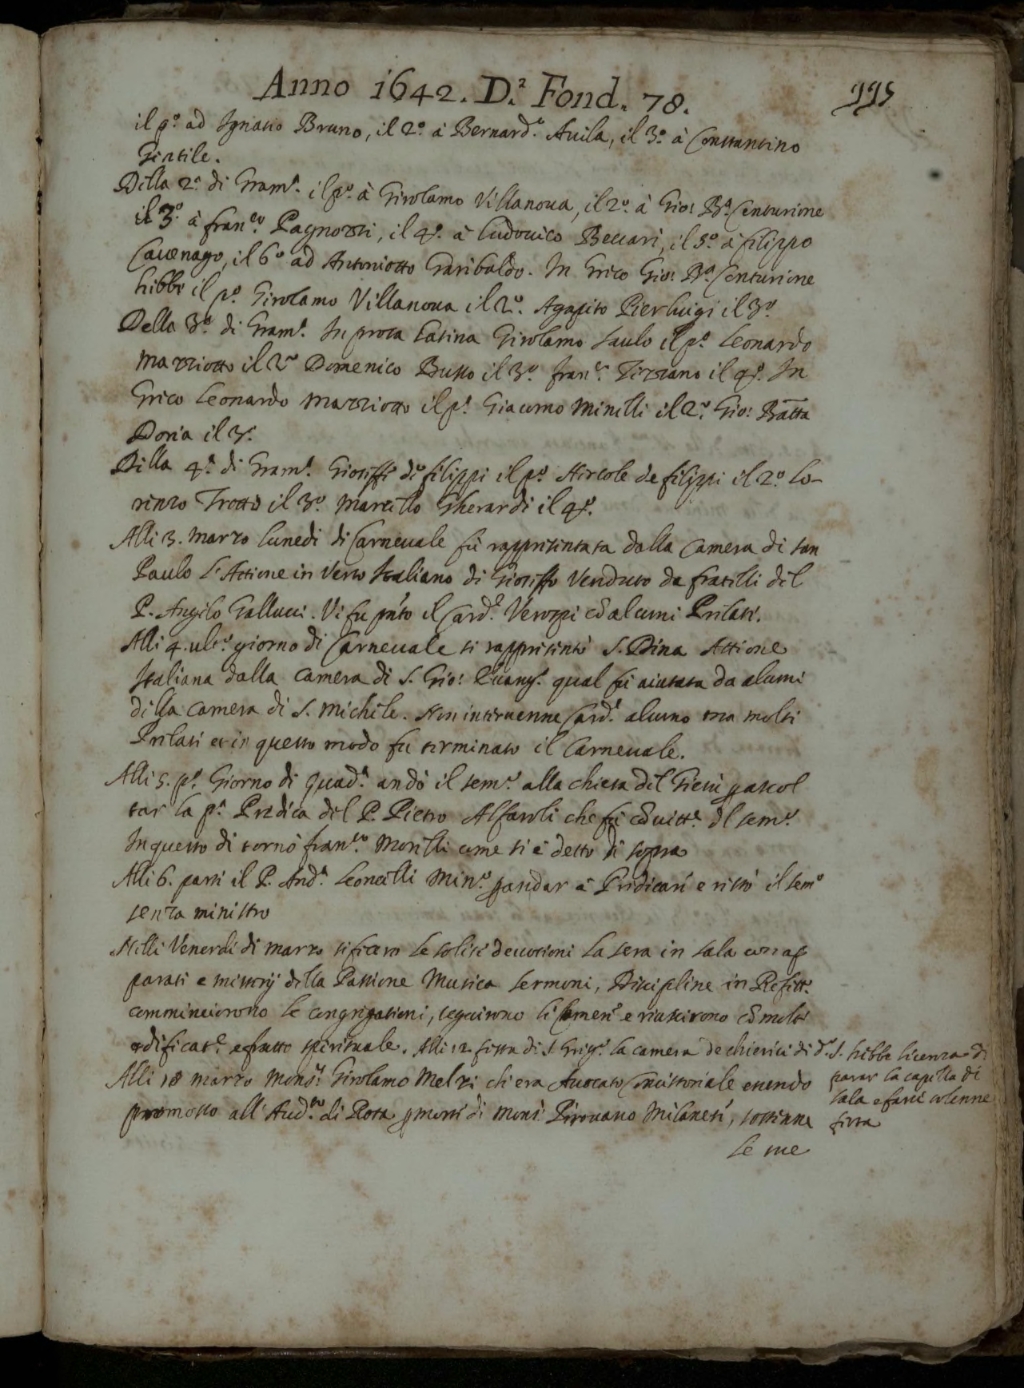 Anno 1642. D.ª Fond. 78.
115
il p.º ad Ignatio Bruno, il 2.º à Bernard.º Auila, il 3.º à Constantino
Gentile.
Della 2.ª di Gram.ª il p.º à Girolamo Villanoua, il 2.º à Gio: B.ª Centurione
il 3.º à Fran.co Pagnozzi, il 4.º à Ludouico Beccari, il 5.º à Filippo
Cauenago, il 6.º ad Antoniotto Garibaldo. In Greco Gio: B.ª Centurione
hebbe il p.º Girolamo Villanoua il 2.º Agapito Pierluigi il 3.º
Della 3.ª di Gram.ª In prosa Latina Girolamo Saulo il p.º Leonardo
Marziotto il 2.º Domenico Busso il 3.º Fran.º Tirziano il 4.º In
Greco Leonardo Marziotto il p.º Giacomo Minelli il 2.º Gio: Batta
Doria il 3.º
Della 4.ª di Gram.ª Gioseffo de Filippi il p.º Hercole de Filippi il 2.º Lo-
renzo Trotto il 3.º Marcello Gherardi il 4.º
Alli 3. Marzo lunedi di Carneuale fù rappresentata dalla Camera di San
Paulo l'Attione in Verso Italiano di Gioseffo Venduto da fratelli del
P. Angelo Gallucci. Vi fu pñte il Card.l Verospi cõ alcuni Prelati.
Alli 4. ult.º giorno di Carneuale si rappresentò S. Dina Attione
Italiana dalla Camera di S. Gio: Euang.ª qual fù aiutata da alcuni
della Camera di S. Michele. Non interuenne Card.l alcuno ma molti
Prelati et in questo modo fù terminato il Carneuale.
Alli 5. p.º Giorno di Quad.ª andò il Sem.º alla chiesa del Giesù p ascol
tar la p.ª Predica del P. Pietro Alfaroli che fù cõuitt.e del Sem.º
In questo di tornò Fran.co Morelli come si è detto di sopra
Alli 6. parti il P. And.ª Leoncelli Min.º p andar à Predicare e restò il Sem.º
senza ministro
Nelli Venerdi di Marzo si fecero le solite deuotioni la sera in sala con ap
parati e misterij della Passione Musica Sermoni, Discipline in Refett.º
comminciorono le congregationi, seguirono li esamen.i e riuscirono cõ molta
edificat.e e frutto spirituale. Alli 12. festa di S. Greg.º la camera de chierici di d.º S. hebbe licenza di
parar la capella di
sala e farui solenne
festa
Alli 18 marzo Mons.r Girolamo Melzi ch'era Auocato Concistoriale essendo
promosso all'Aud.to di Rota p morte di Mons.r Pirouano Milanese, sostenne
le sue